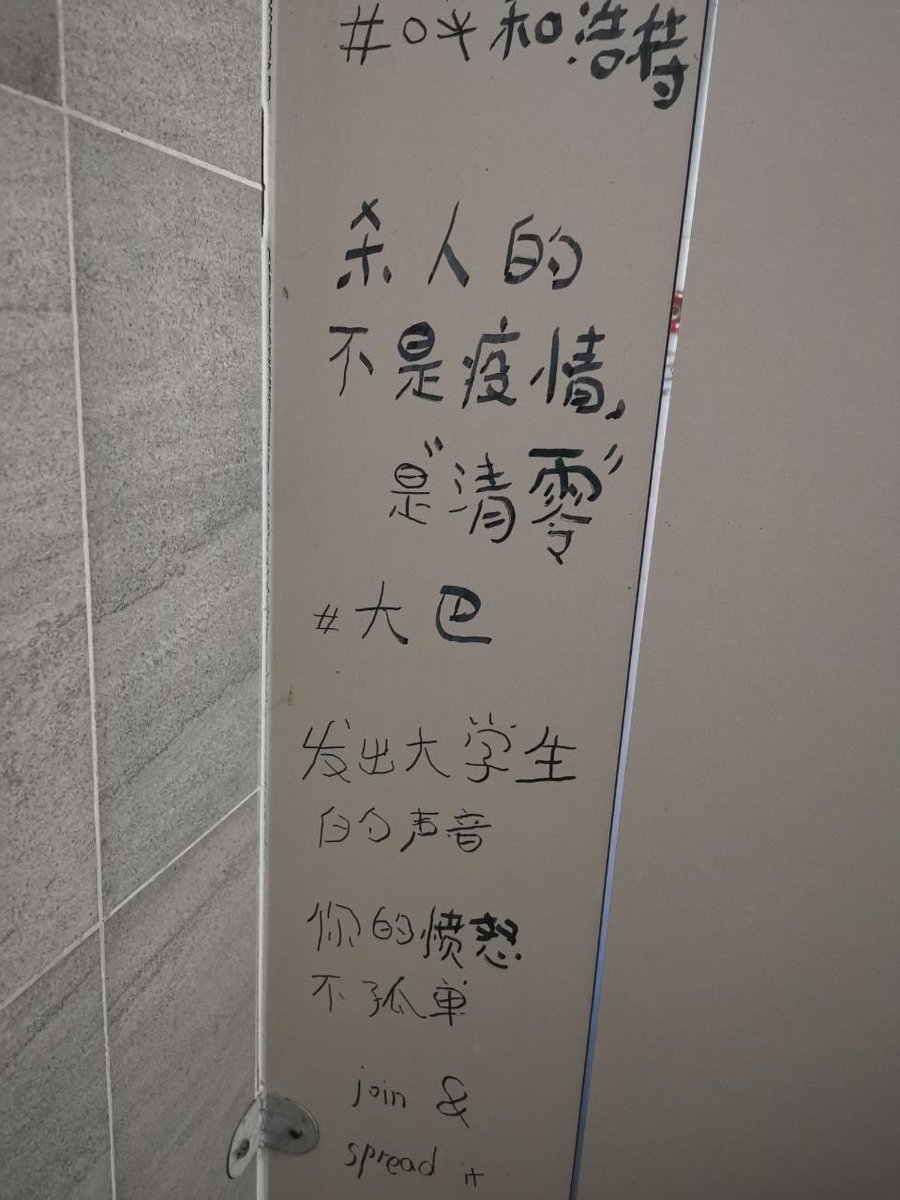 #呼和浩特
杀人的
不是疫情，
是"清零"
#大巴
发出大学生
的声音
你的愤怒
不孤单
join &
spread it